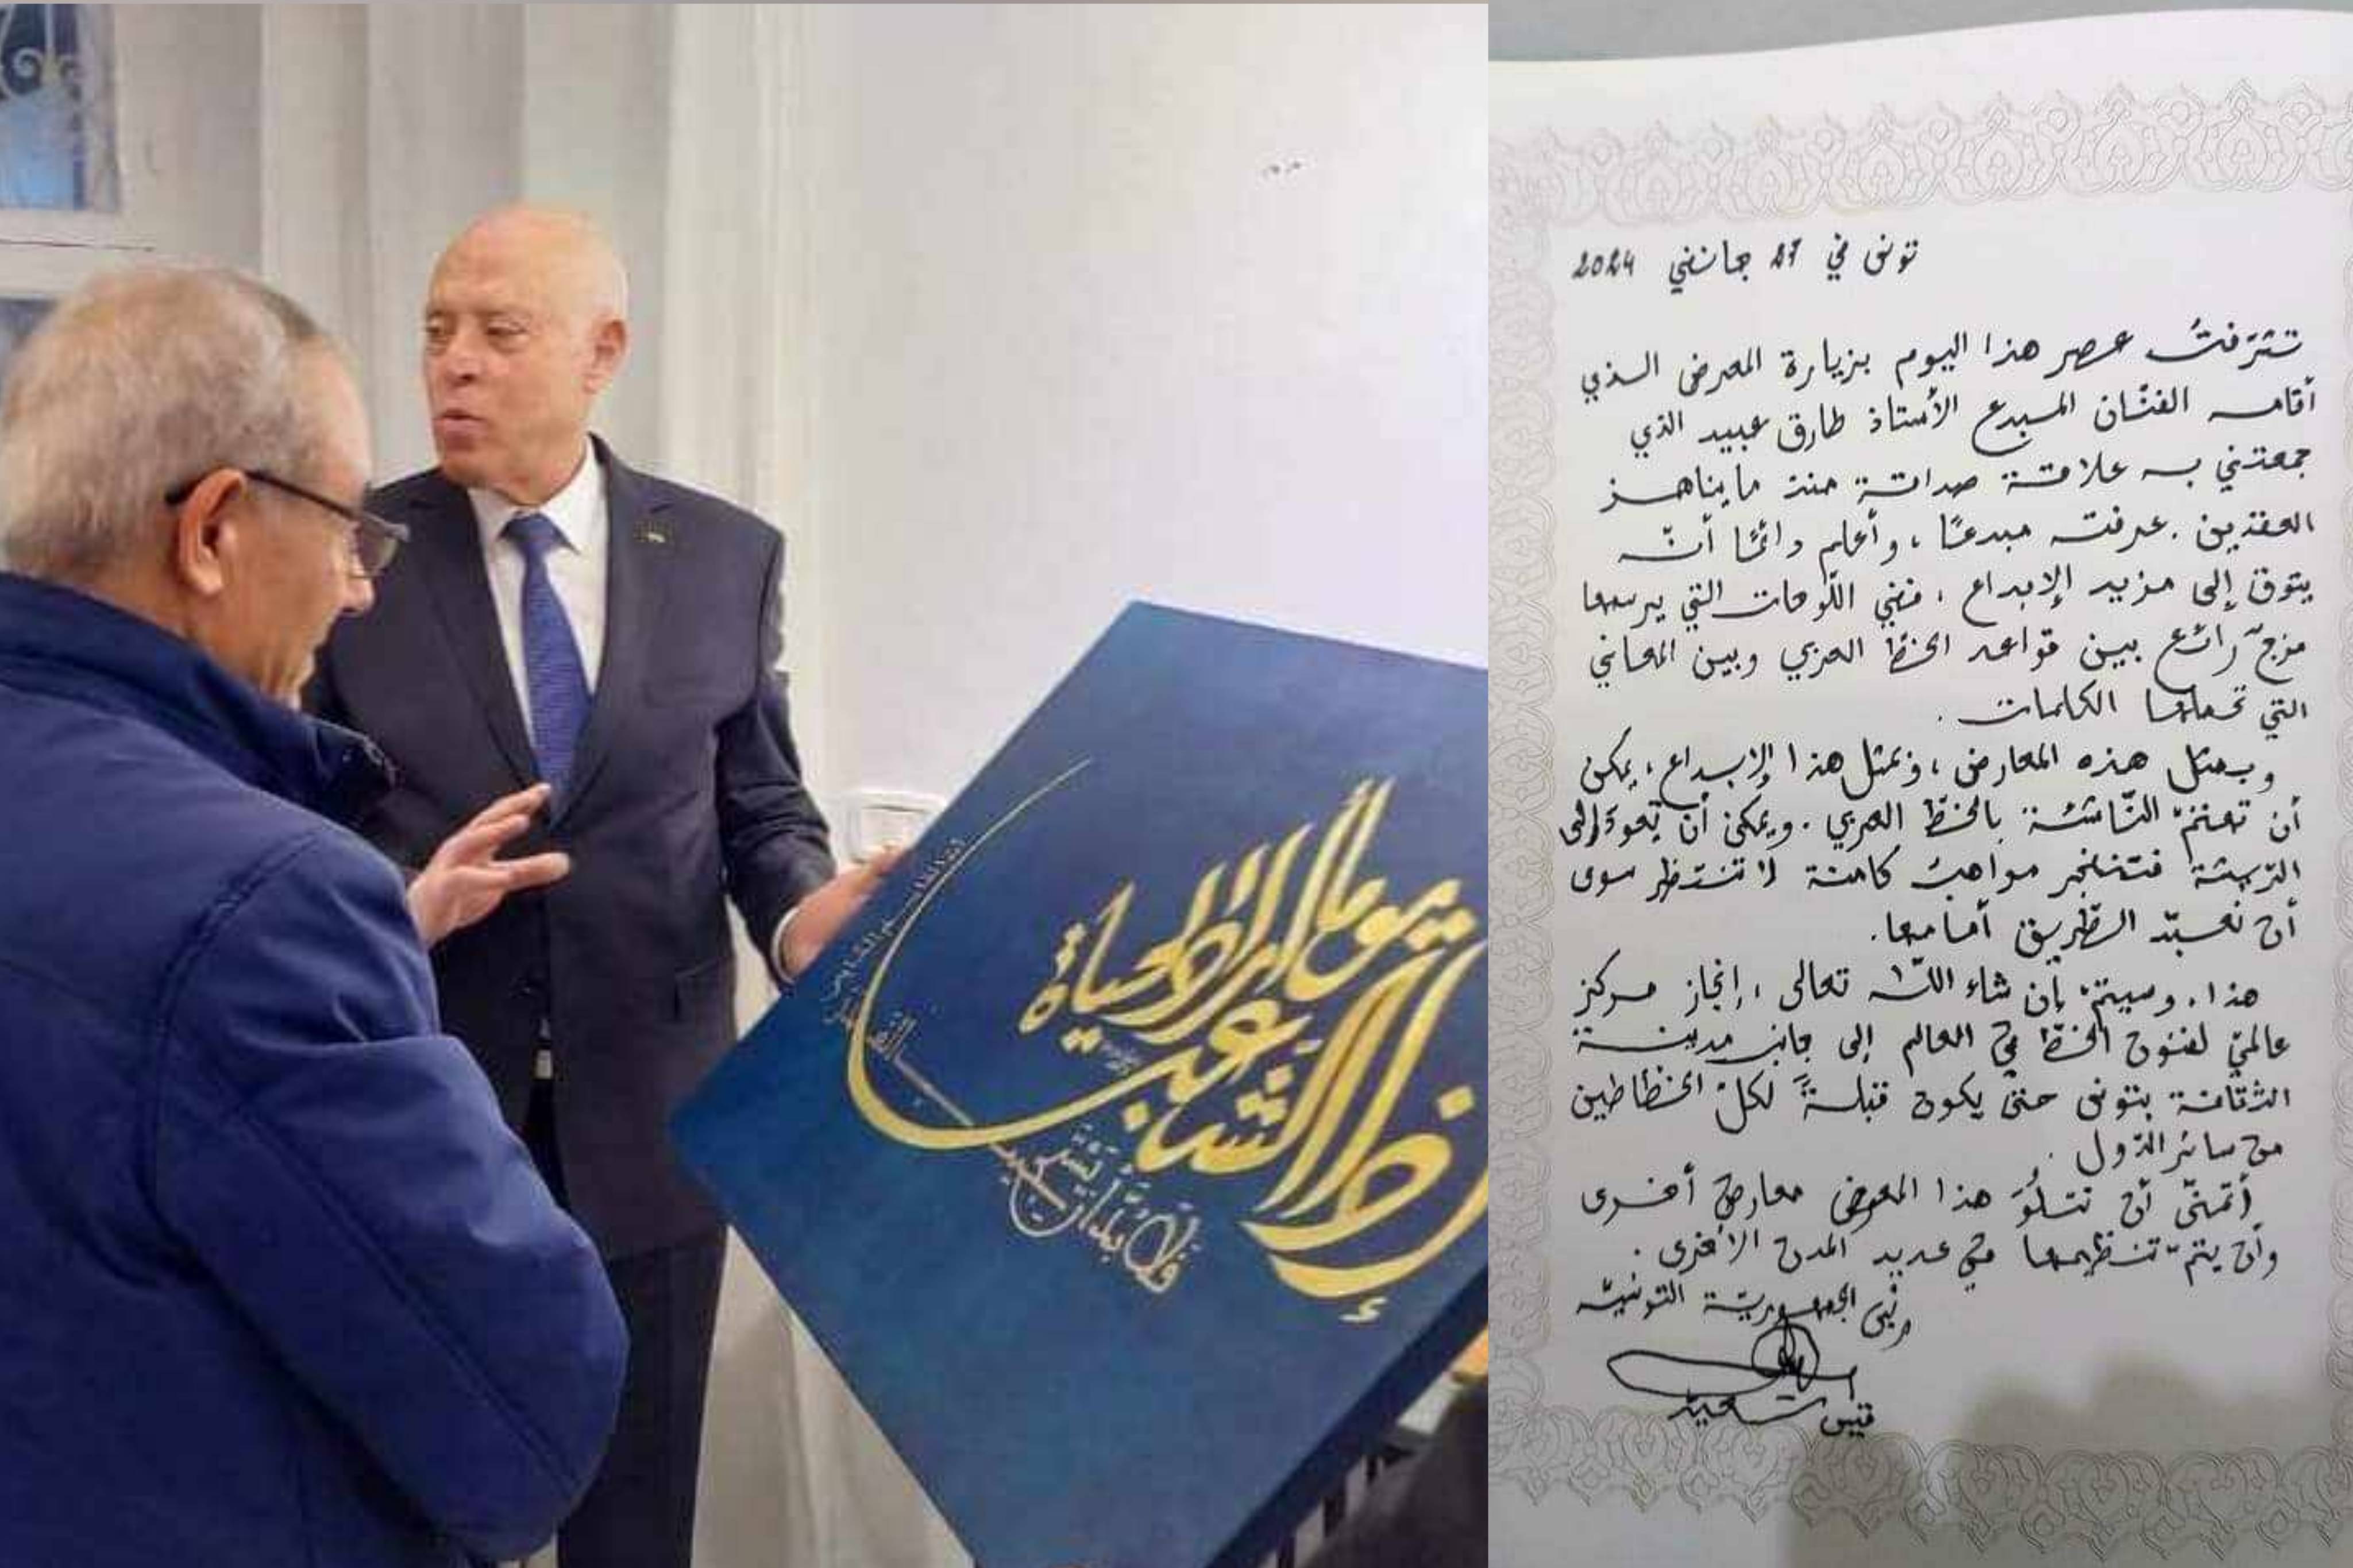 إذا الشعب
يوما أراد الحياة
فلا بد أن يستجيب
القدر
تونس في 27 جانفي 2024
تشرّفتُ عصر هذا اليوم بزيارة المعرض الذي
أقامه الفنّان المبدع الأستاذ طارق عبيد الذي
جمعتني به علاقة صداقة منذ ما يناهز
العقدين. عرفته مبدعًا، وأعلم دائمًا أنّه
يتوق إلى مزيد الإبداع، ففي اللّوحات التي يرسمها
مزجٌ رائع بين قواعد الخطّ العربي وبين المعاني
التي تحملها الكلمات.
وبمثل هذه المعارض، وبمثل هذا الإبداع، يمكن
أن تهتمّ النّاشئة بالخطّ العربي. ويمكن أن تعود إلى
التربية فتنفجر مواهبُ كامنة لا تنتظر سوى
أن نعبّد الطّريق أمامها.
هذا. وسيتمّ، إن شاء اللّه تعالى، إنجاز مركز
عالميّ لفنون الخطّ في العالم إلى جانب مدينة
الثّقافة بتونس حتى يكون قبلةً لكلّ الخطّاطين
من سائر الدّول.
أتمنّى أن تتلُوَ هذا المعرض معارض أخرى
وأن يتمّ تنظيمها في عديد المدن الأخرى.
رئيس الجمهوريّة التونسيّة
قيس سعيّد